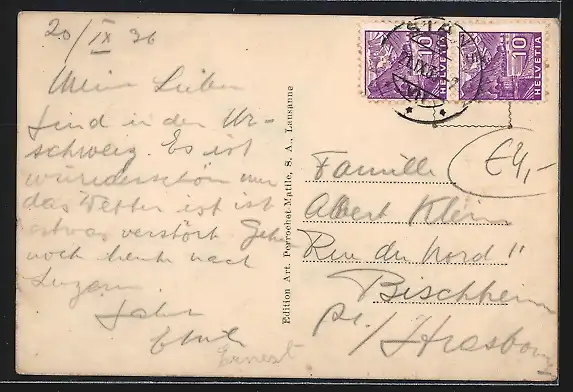 20/IX 36
Meine Lieben
Sind in der Ur-
schweiz. Es ist
wunderschön nur
das Wetter ist ist
etwas verstört. Gehen
noch heute nach
Luzern.
Ernest
Edition Art. Perrochet-Matile, S. A., Lausanne
STANS
10
HELVETIA
10
HELVETIA
€4,-
Famille
Albert Klein
Rue du Nord 11
Bischheim
pr./Strasbourg